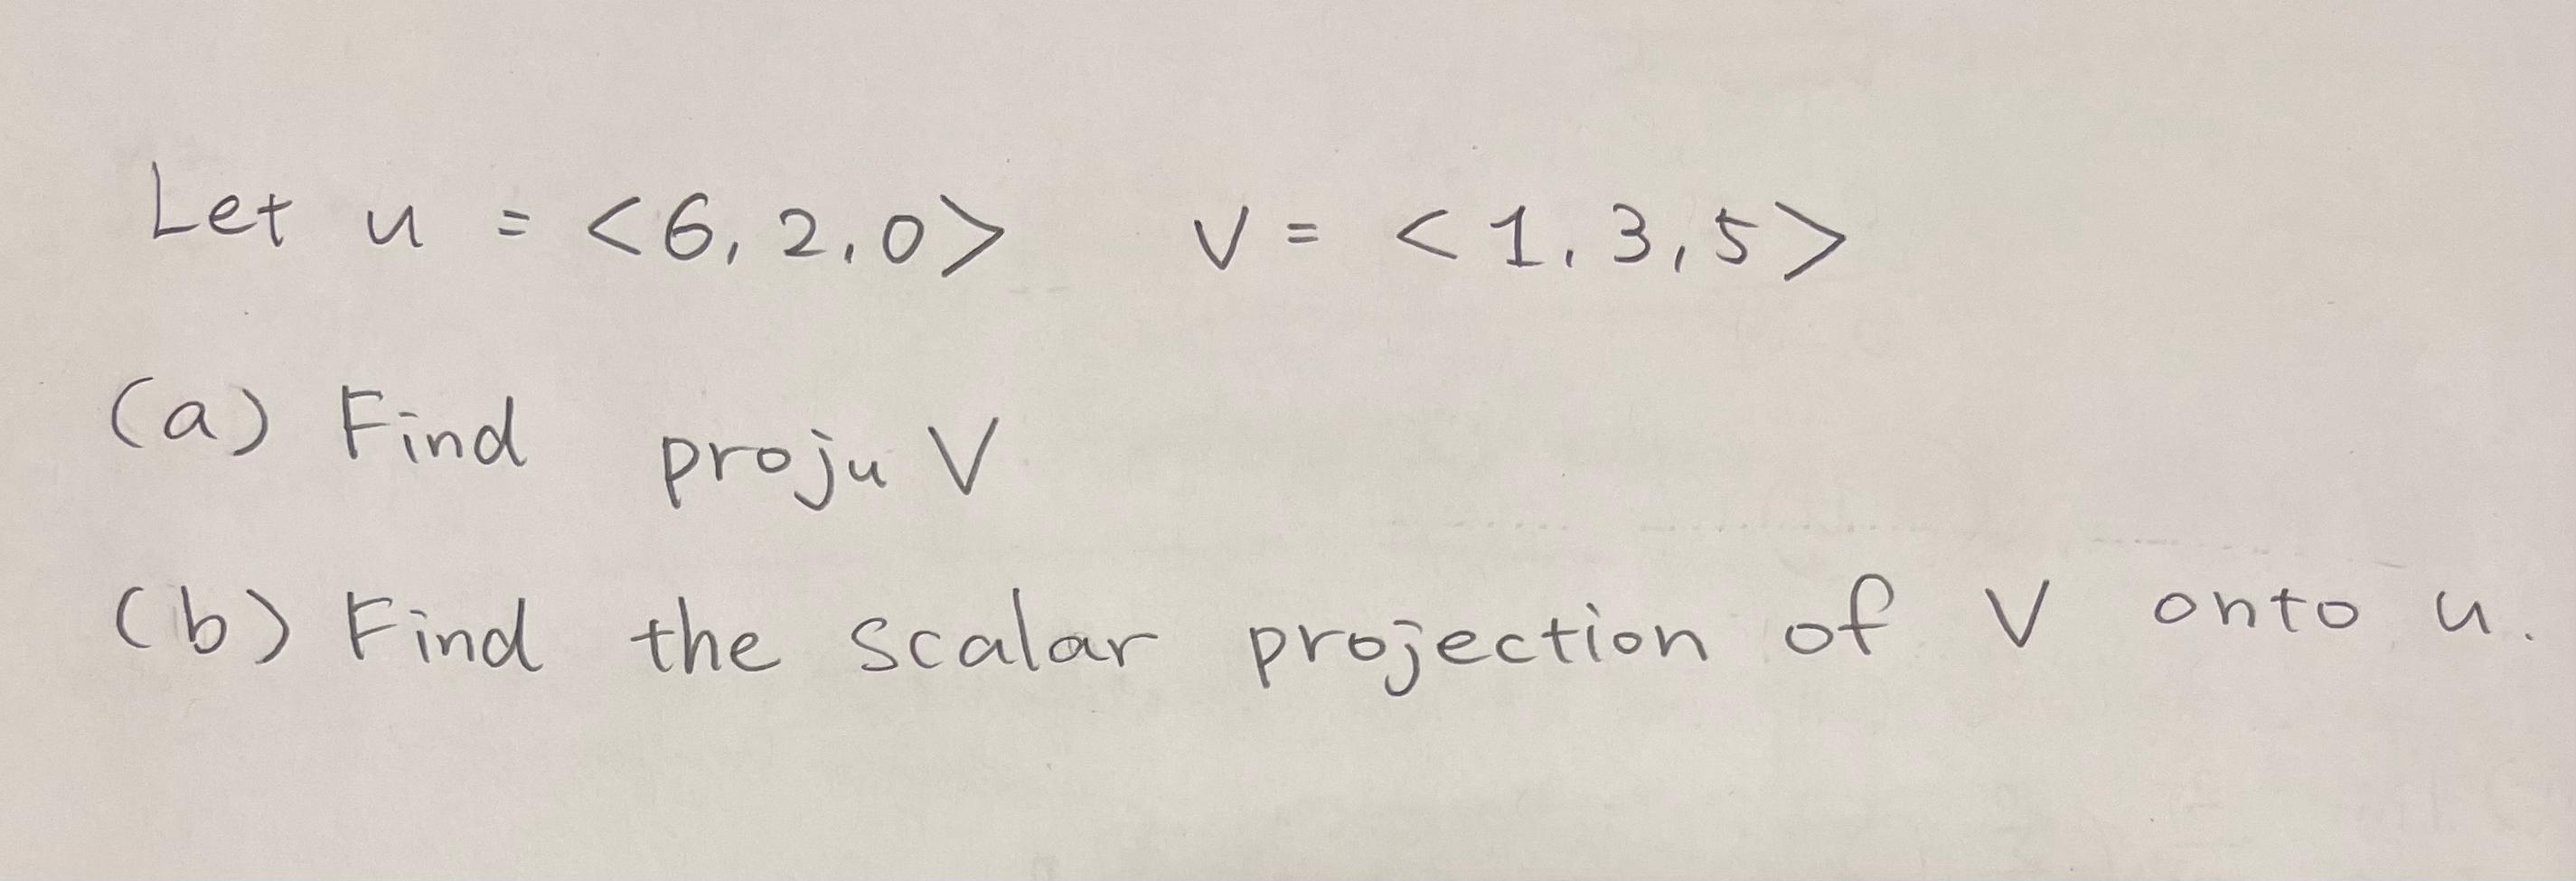 Let u = <6, 2, 0> v = <1, 3, 5>
(a) Find proju V
(b) Find the scalar projection of V onto u.